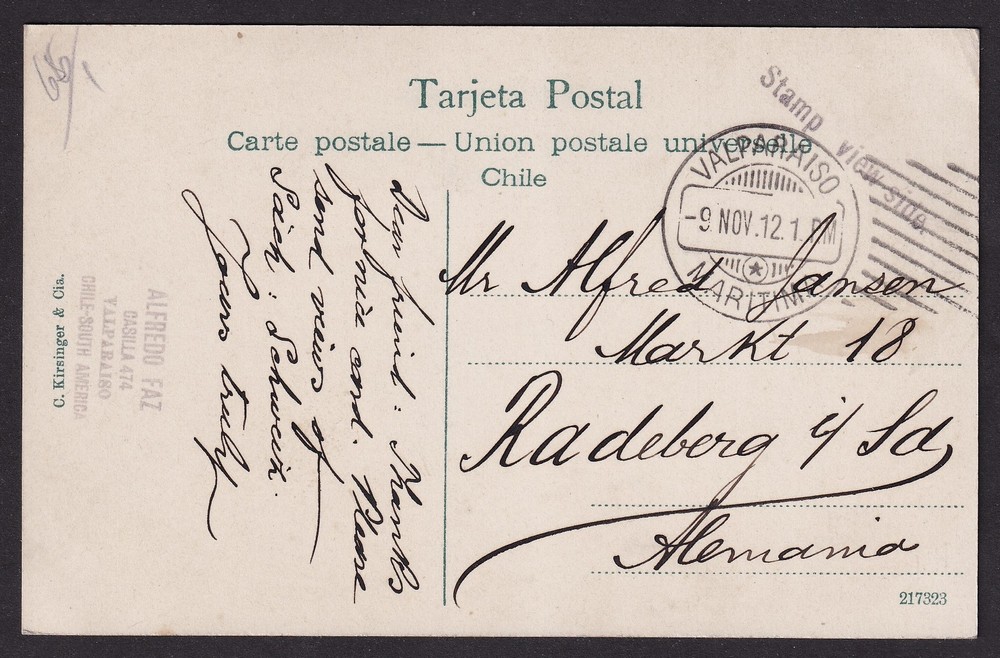 65
Tarjeta Postal
Carte postale — Union postale universelle
Chile
Stamp view-side.
VALPARAISO
-9 NOV.12.1.PM
MARITIM
Mr Alfred Jansen
Markt 18
Radeberg i/ Sa
Alemania
217323
Dear friend: Thanks
for nice card. Please
send views of
Säch: Schweiz.
Yours truly
ALFREDO FAZ
CASILLA 474
VALPARAISO
CHILE-SOUTH AMERICA
C. Kirsinger & Cia.